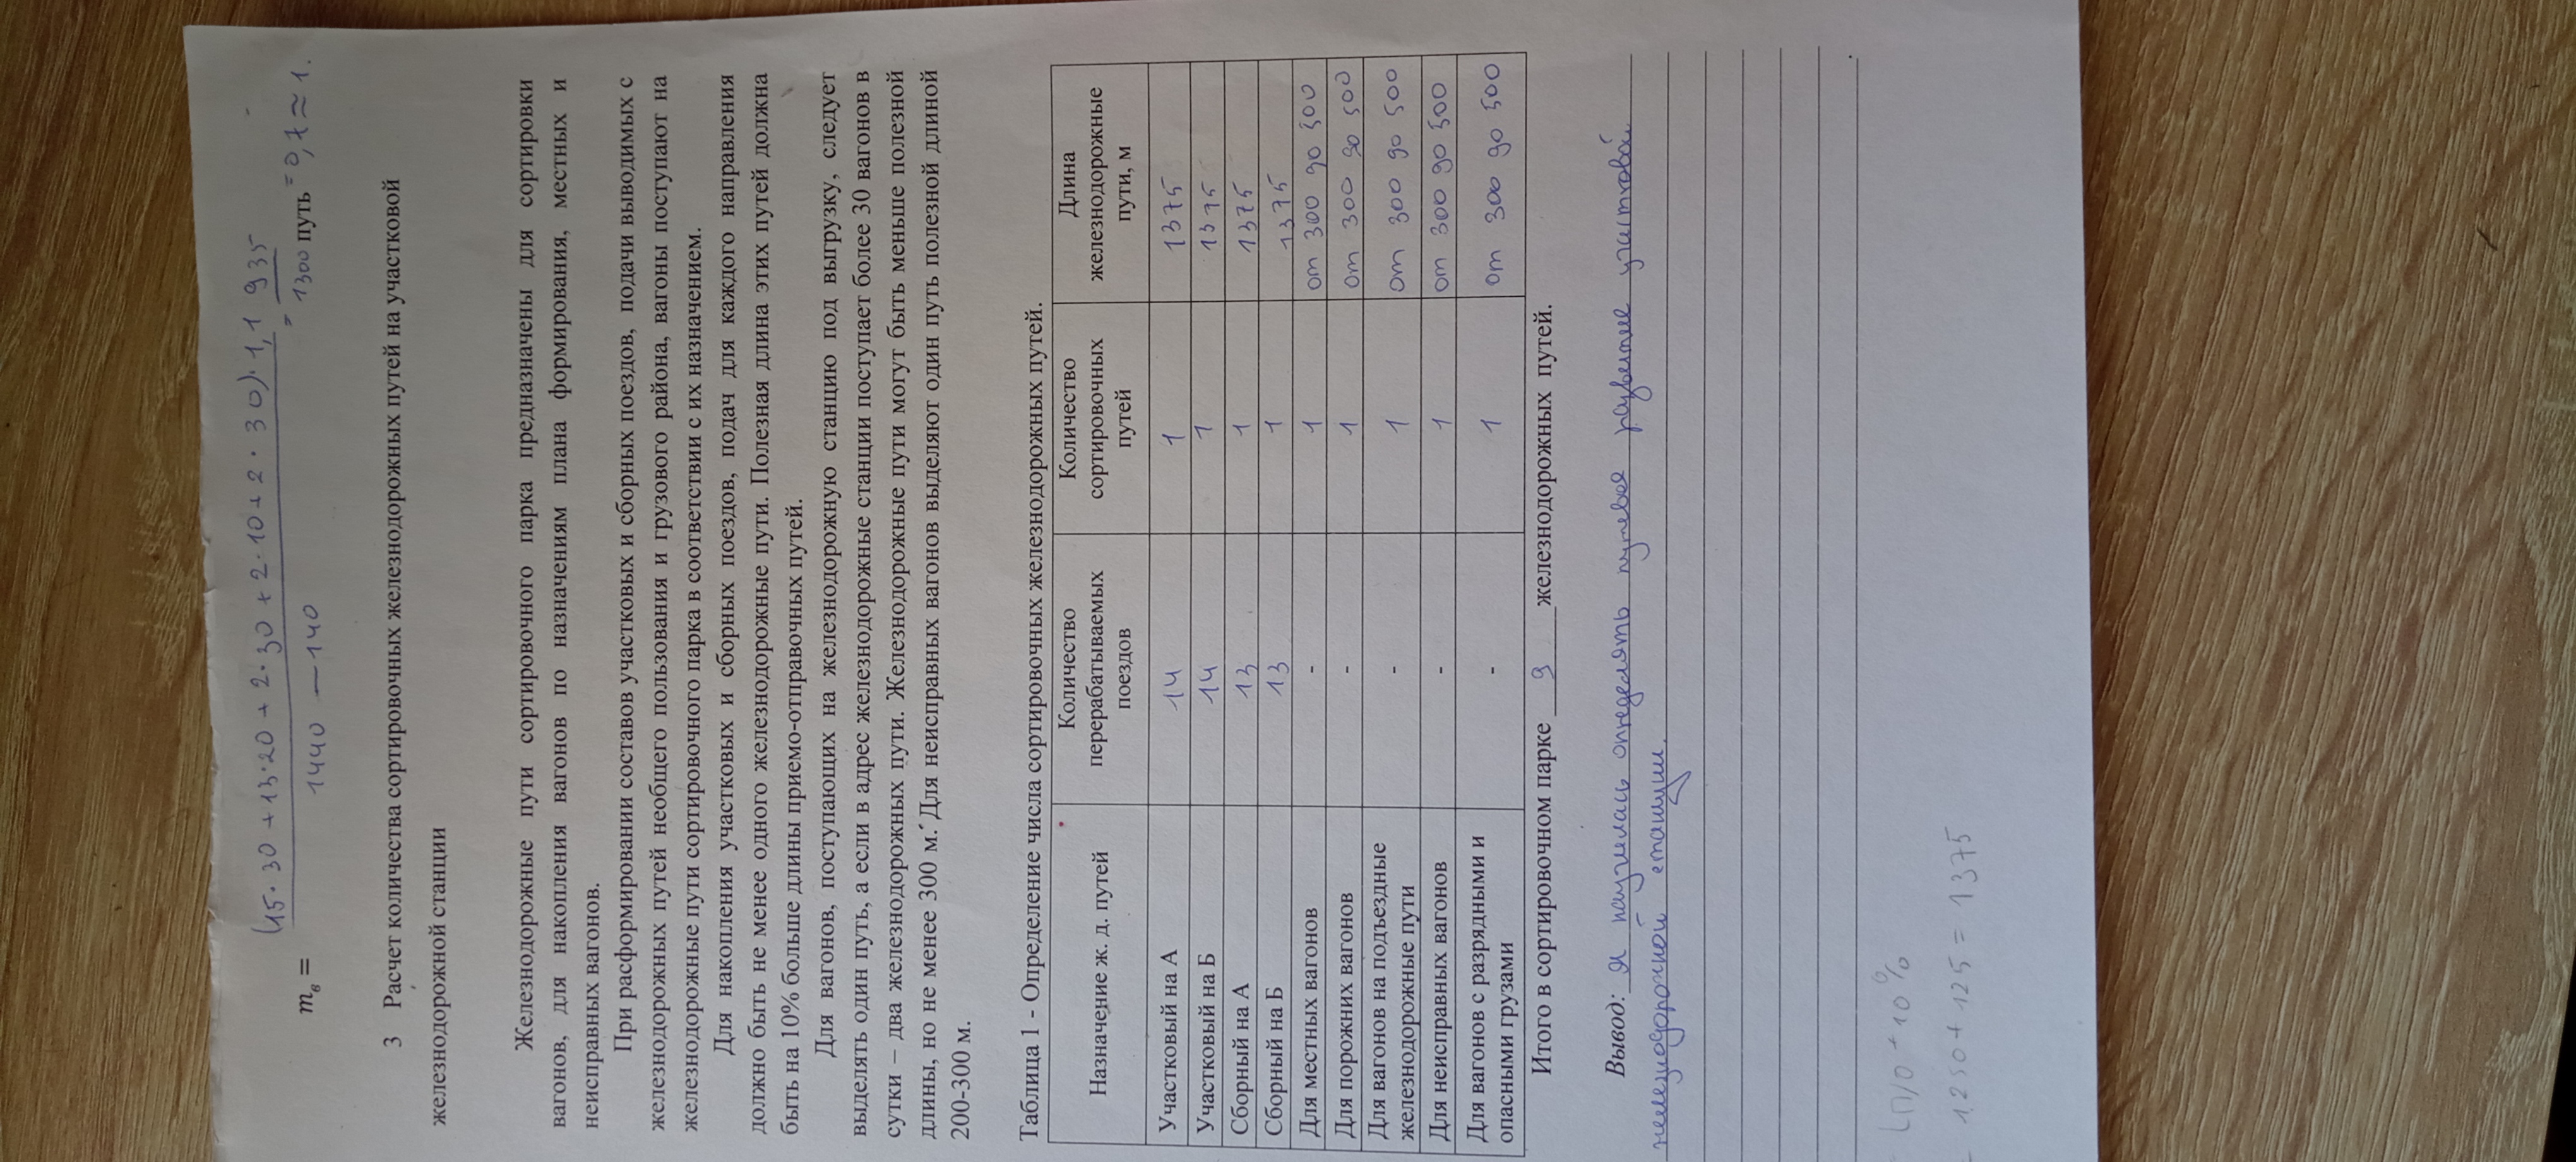 (15·30+13·20+2·30+2·10+2·30)·1,1   935
mв = ─── = ─── путь = 0,7 ≈ 1.
1440 — 140   1300
3 Расчет количества сортировочных железнодорожных путей на участковой
железнодорожной станции
Железнодорожные пути сортировочного парка предназначены для сортировки
вагонов, для накопления вагонов по назначениям плана формирования, местных и
неисправных вагонов.
При расформировании составов участковых и сборных поездов, подачи выводимых с
железнодорожных путей необщего пользования и грузового района, вагоны поступают на
железнодорожные пути сортировочного парка в соответствии с их назначением.
Для накопления участковых и сборных поездов, подач для каждого направления
должно быть не менее одного железнодорожные пути. Полезная длина этих путей должна
быть на 10% больше длины приемо-отправочных путей.
Для вагонов, поступающих на железнодорожную станцию под выгрузку, следует
выделять один путь, а если в адрес железнодорожные станции поступает более 30 вагонов в
сутки – два железнодорожных пути. Железнодорожные пути могут быть меньше полезной
длины, но не менее 300 м. Для неисправных вагонов выделяют один путь полезной длиной
200-300 м.
Таблица 1 - Определение числа сортировочных железнодорожных путей.
Назначение ж. д. путей | Количество перерабатываемых поездов | Количество сортировочных путей | Длина железнодорожные пути, м
Участковый на А | 14 | 1 | 1375
Участковый на Б | 14 | 1 | 1375
Сборный на А | 13 | 1 | 1375
Сборный на Б | 13 | 1 | 1375
Для местных вагонов | - | 1 | от 300 до 500
Для порожних вагонов | - | 1 | от 300 до 500
Для вагонов на подъездные железнодорожные пути | - | 1 | от 300 до 500
Для неисправных вагонов | - | 1 | от 300 до 500
Для вагонов с разрядными и опасными грузами | - | 1 | от 300 до 500
Итого в сортировочном парке 9 железнодорожных путей.
Вывод: Я научилась определять путевое развитие участковой
железнодорожной станции.
LП/О + 10%
= 1250 + 125 = 1375